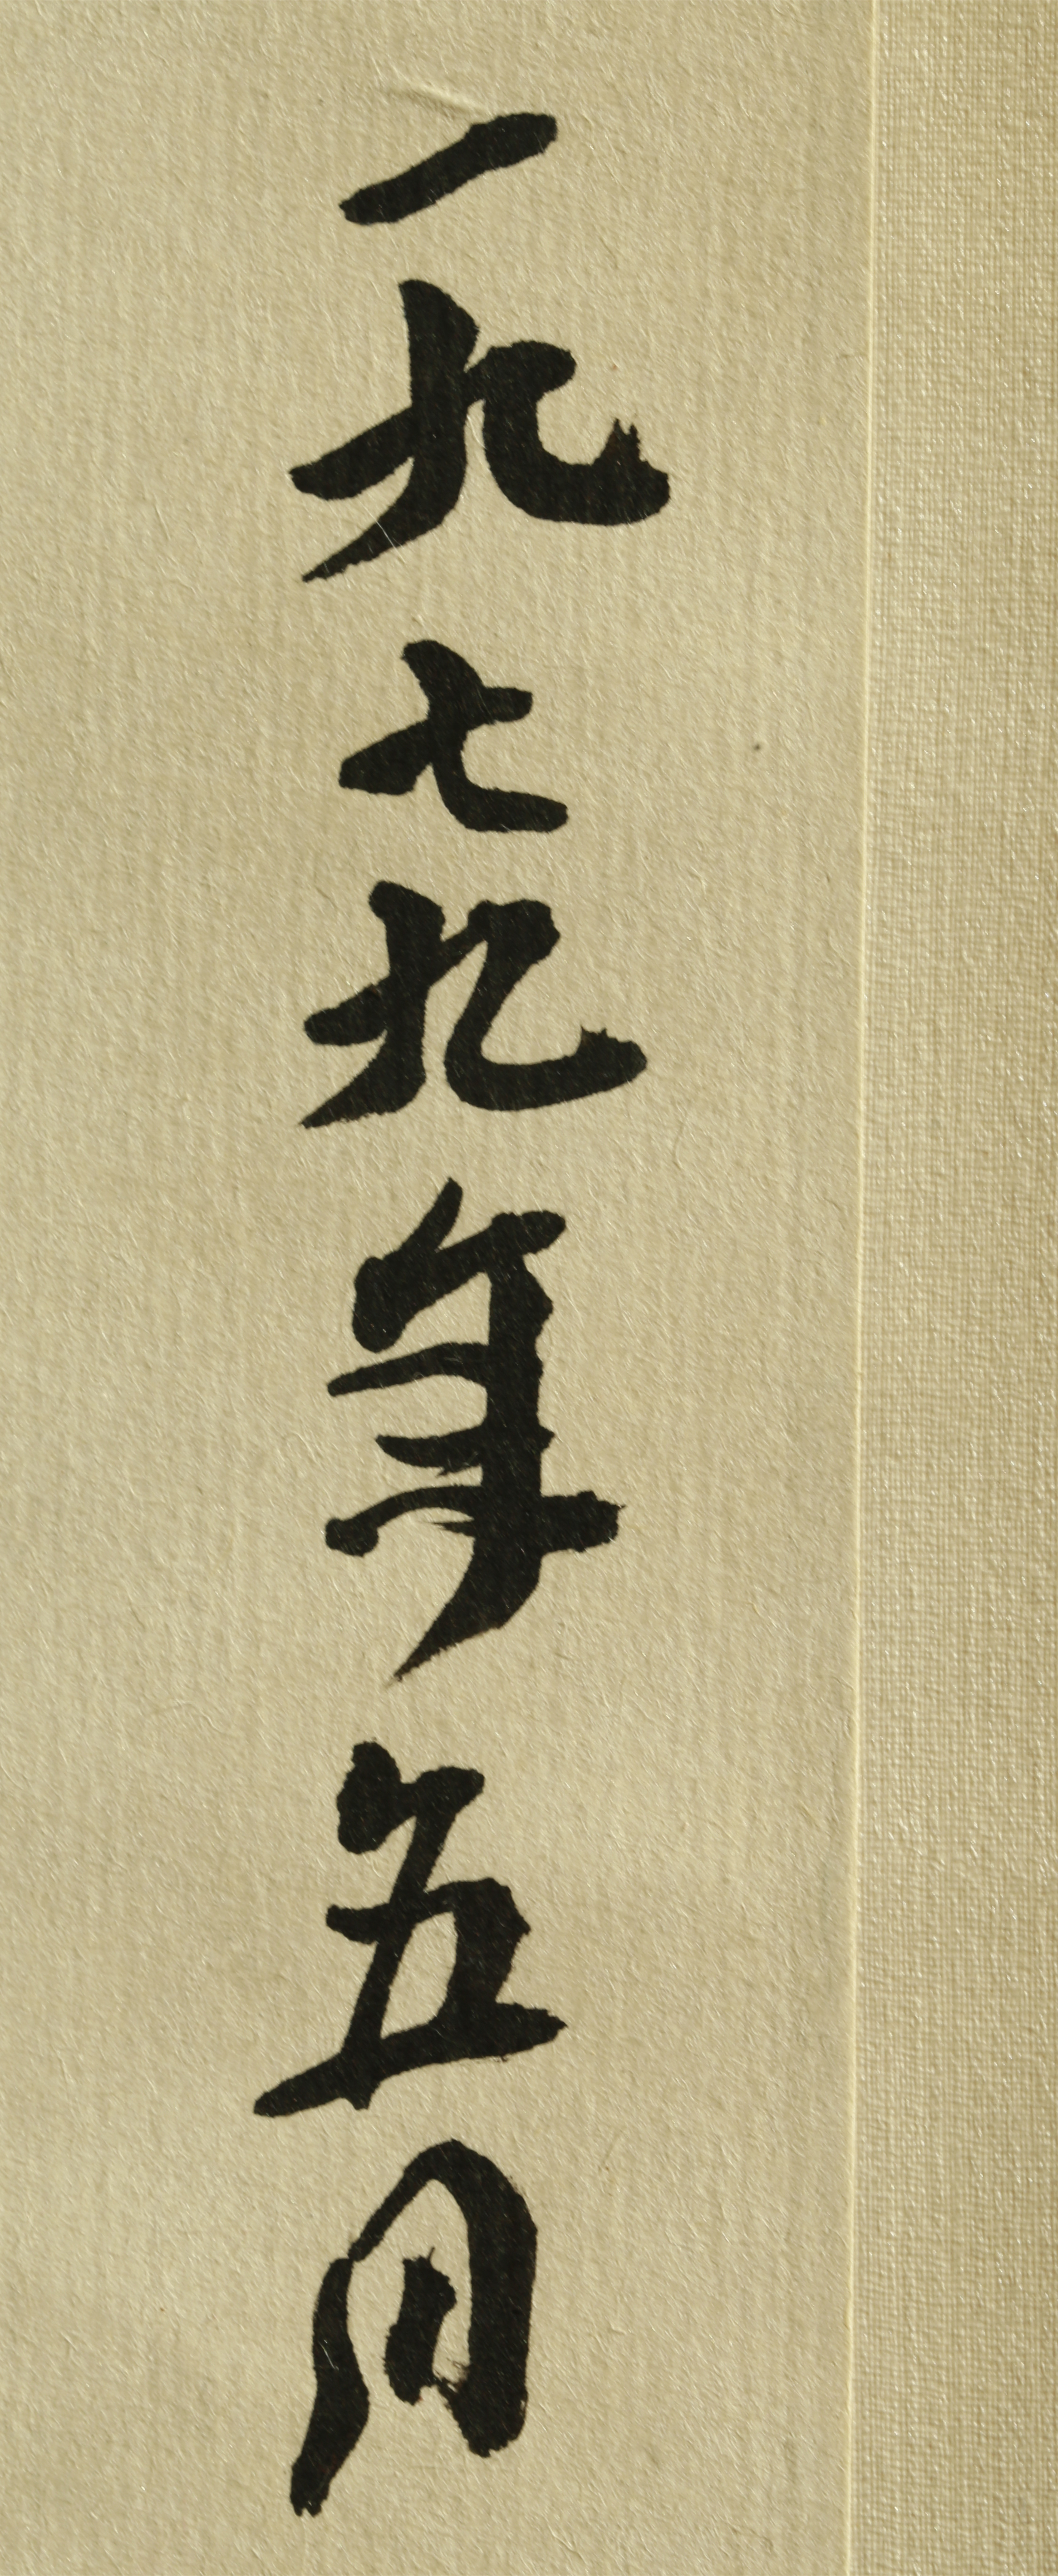 一九七九年五月